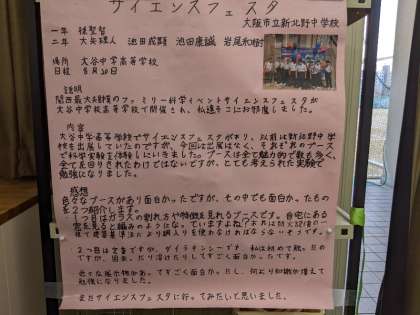 サイエンスフェスタ
大阪市立新北野中学校
一年
二年 大矢理人 池田 池田康誠 岩尾和樹
場所 大谷中学高等学校
日程 8月20日
説明
関西最大規模のファミリー科学イベントサイエンスフェスタが
大谷中学校高等学校で開催され、私達もそこにお邪魔しました。
内容
大谷中学高等学校でサイエンスフェスタがあり、以前は新北野中学
校も出展していたのですが、今回は出展はなく、それぞれのブース
で科学実験を体験しにいきました。ブースは全て魅力的で数も多く、
全てを回りきれたわけではないですが、とても考えられた実験で
勉強になりました。
感想
色々なブースがあり面白かったですが、その中でも面白かったもの
を2つ紹介します。
1つ目はガラスの割れ方や特徴を見れるブースです。自宅にある
窓を見ると編みのようになっていますよね?
2つ目は定番ですが、ダイラタンシーです。私は初めて触ったの
ですが、固まったり溶けたりしてすごく面白かったです。
色々な展示物があってすごく面白かったし、何より知識が増えて
勉強になりました。
またサイエンスフェスタに行ってみたいと思いました。